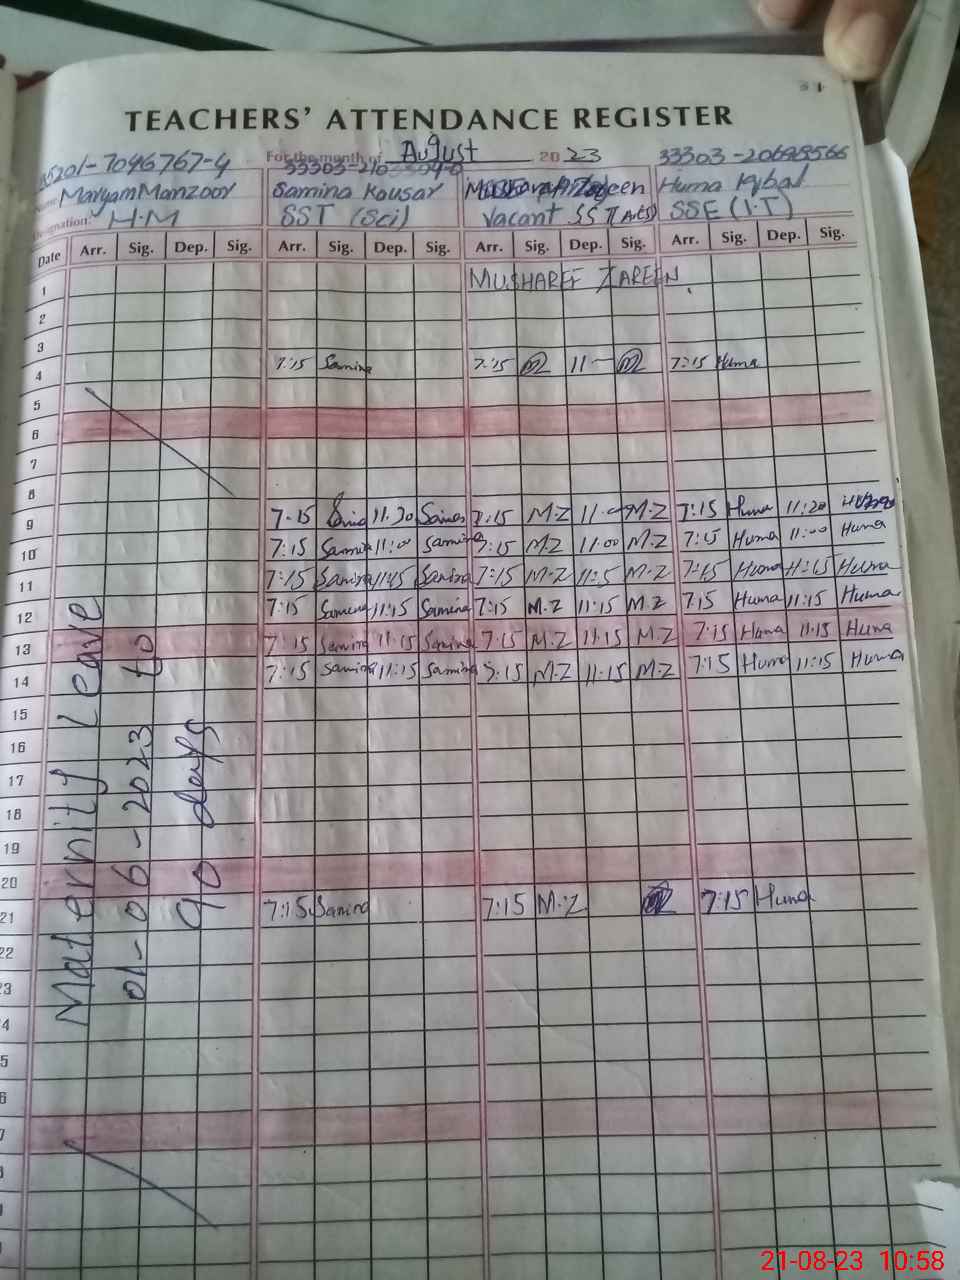 TEACHERS' ATTENDANCE REGISTER
For the month of August 2023
7046767-4 33303-210 33303-20698566
Name Maryam Manzoor Samina Kousar Huma Iqbal
Designation: H.M SST (Sci) Vacant SST (Arts) SSE (I.T)
Date Arr. Sig. Dep. Sig. Arr. Sig. Dep. Sig. Arr. Sig. Dep. Sig. Arr. Sig. Dep. Sig.
1 MUSHAREF ZAREEN
2
3
4 7:15 Samina 7:15 11 7:15 Huma
5
6
7
8
9 7-15 11:30 7:15 M-Z 11 M-Z 7:15 Huma 11:20 Huma
10 7:15 Samina 11:00 Samina 7:15 M-Z 11:00 M-Z 7:15 Huma 11:00 Huma
11 7:15 Samina 11:15 Samina 7:15 M-Z 11:15 M-Z 7:15 Huma 11:15 Huma
12 7:15 Samina 11:15 Samina 7:15 M.Z 11:15 M.Z 7:15 Huma 11:15 Huma
13 7:15 Samina 11:15 Samina 7:15 M.Z 11:15 M.Z 7:15 Huma 11:15 Huma
14 7:15 Samina 11:15 Samina 7:15 M.Z 11:15 M.Z 7:15 Huma 11:15 Huma
15
16
17
18
19
20
21 7:15 Samina 7:15 M.Z 7:15 Huma
22
23
Maternity Leave
01-06-2023 to
90 days
21-08-23 10:58